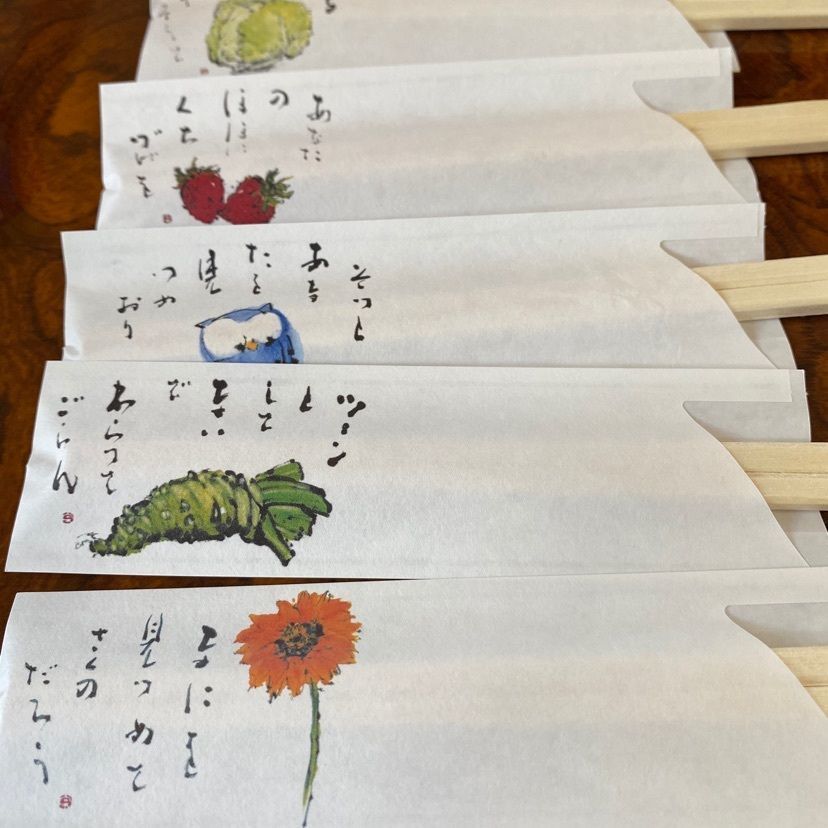 あなた
の
ほほに
くち
づけを
そっと
あな
たを
見
つめ
おり
ツーン
と
して
ない
で
わらって
ごらん
なにを
見つめて
さくの
だろう